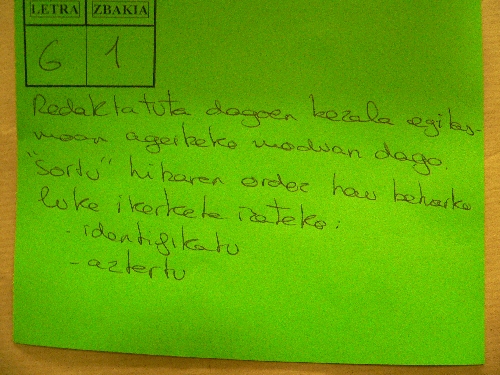 LETRA ZBAKIA
6 1
Redaktatuta dagoen bezala egitas-
moan agertzeko moduan dago.
"Sortu" hitzaren ordez hau beharko
luke ikerketa izateko:
- identifikatu
- aztertu